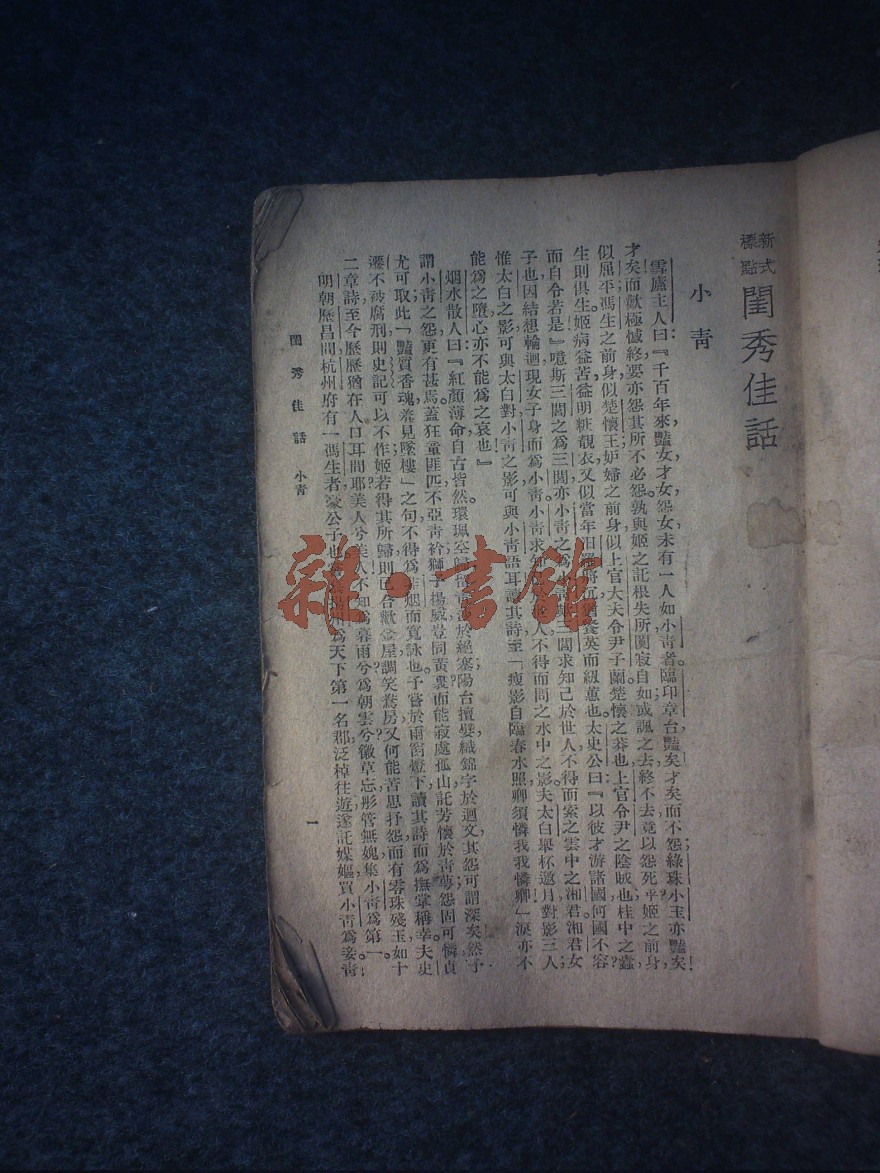 新式標點
閨秀佳話
小青
雪廬主人曰：『千百年來，豔女，才女，怨女，未有一人如小青者。臨卭章台，豔矣才矣而不怨；綠珠小玉亦豔矣！
才矣而歉極憾終，要亦怨其所不必怨。孰與姬之託根失所闃寂自如，或諷之去，終不去，竟以怨死乎？姬之前身，
似屈平；馮生之前身，似楚懷王；妒婦之前身，似上官大夫令尹子蘭。楚懷之莽也，上官令尹之陰賊也，桂中之蠹，
生則俱生。姬病益苦，益明粧靚衣，又似當年
而自令若是。』噫！斯三閭之爲三閭，亦小青之爲
三閭求知己於世人不得而索之雲中之湘君，湘君女
子也，因結想輪迴，現女子身而爲小青；小青求知
人不得而問之水中之影。夫太白舉杯邀月，對影三人；
惟太白之影，可與太白對，小青之影，可與小青語耳。讀其詩至「瘦影自臨春水照，卿須憐我我憐卿」淚亦不
能爲之墮，心亦不能爲之哀也』
烟水散人曰：『紅顏薄命，自古皆然，環珮空歸
於絕塞，陽台擅嬖，織錦字於迴文，其怨可謂深矣。然予
謂小青之怨，更有甚焉。蓋狂童匪匹，不亞青衿；獅子揚威，豈同黃裏？而能寂處孤山，託芳懷於青夢，怨固可憐，貞
尤可取。此「豔質香魂，羞見墜樓」之句，不得爲非烟而寬詠也。予嘗於雨窗燈下，讀其詩而爲撫掌稱幸。夫史
遷不被腐刑，則史記可以不作；姬若得其所歸，則已合歡金屋，調笑蘭房，又何能苦思抒怨，而有零珠殘玉，如十
二章詩至今歷歷猶在人口耳間耶？美人兮美人，不知爲暮雨兮，爲朝雲兮？徽草忘彤管無媿，集小青爲第一。
明朝歷昌間，杭州府有一馮生者，豪公子也
爲天下第一名郡，泛棹往遊，遂託媒嫗買小青爲妾。青，
閨秀佳話　小青
一
雜·書館